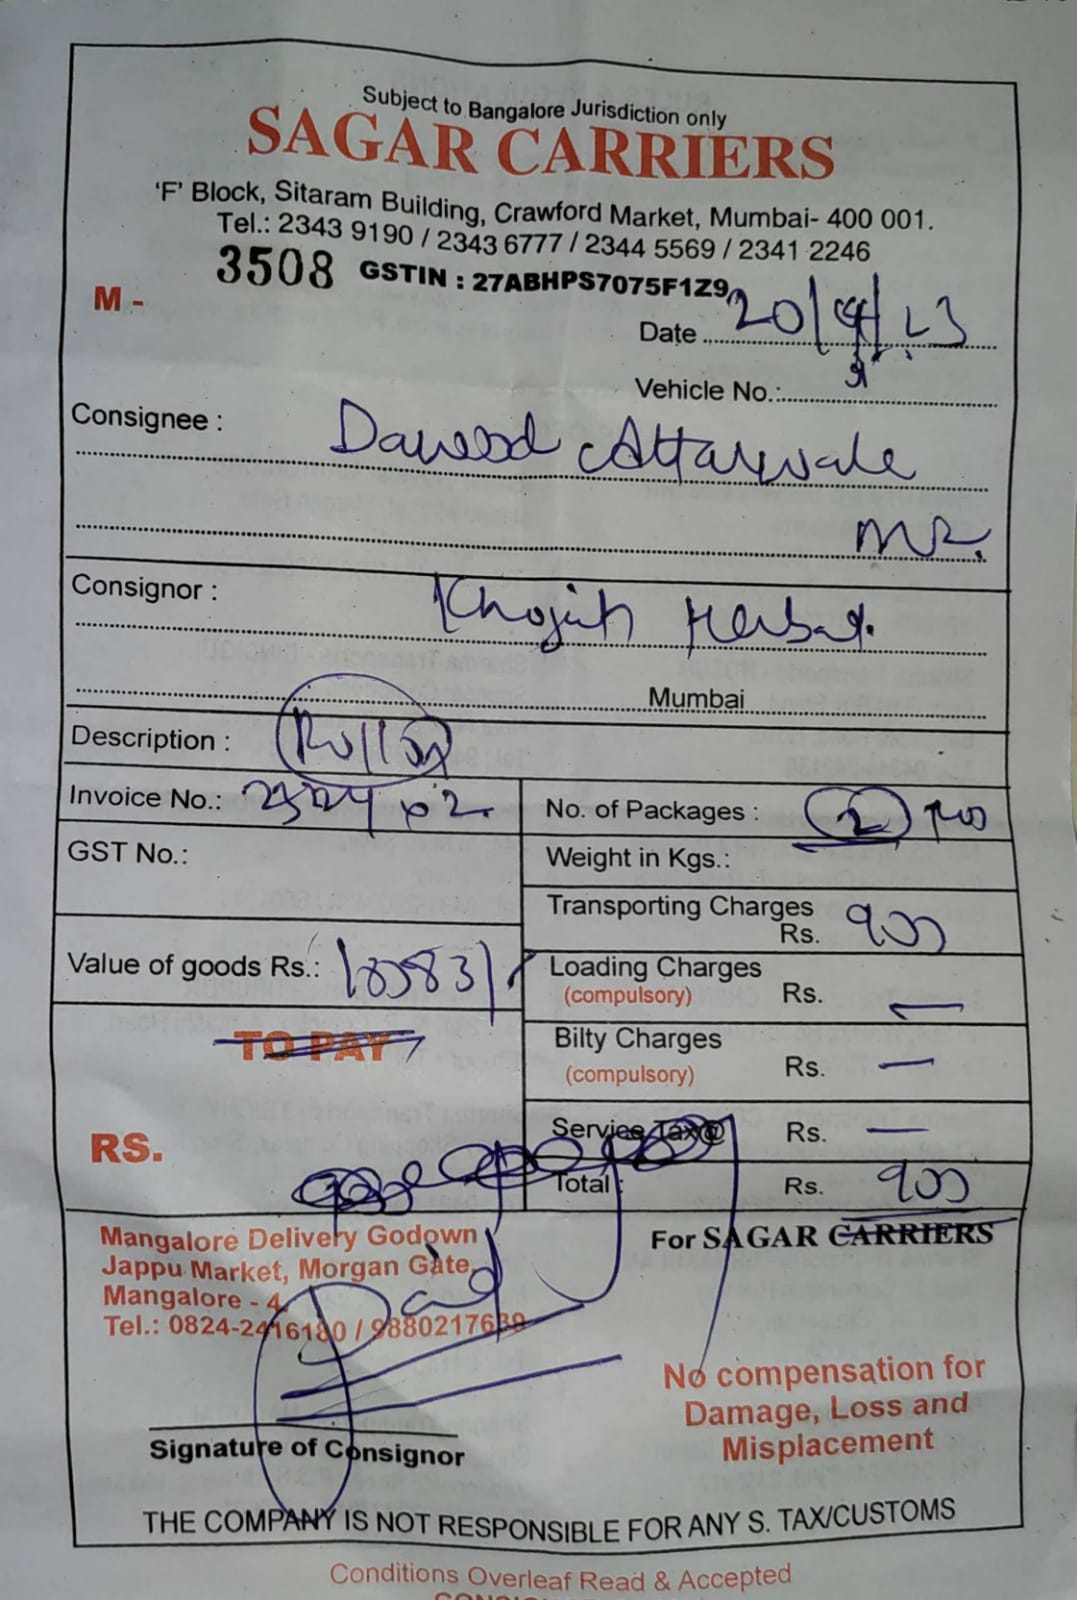 Subject to Bangalore Jurisdiction only
SAGAR CARRIERS
'F' Block, Sitaram Building, Crawford Market, Mumbai- 400 001.
Tel.: 2343 9190 / 2343 6777 / 2344 5569 / 2341 2246
3508 GSTIN : 27ABHPS7075F1Z9
M -
Date 20/4/23
Vehicle No.:
Consignee : Dawood Attarwale
Consignor : Khojati Herbal.
Mumbai
Description :
Invoice No.:
No. of Packages : 2
GST No.:
Weight in Kgs.:
Transporting Charges
Rs. 900
Value of goods Rs.:
Loading Charges
(compulsory) Rs. —
TO PAY
Bilty Charges
(compulsory) Rs. —
RS.
Service Tax@ Rs. —
Total : Rs. 900
Mangalore Delivery Godown
Jappu Market, Morgan Gate,
Mangalore - 4.
Tel.: 0824-2416180 / 9880217639
Paid
For SAGAR CARRIERS
No compensation for
Damage, Loss and
Misplacement
Signature of Consignor
THE COMPANY IS NOT RESPONSIBLE FOR ANY S. TAX/CUSTOMS
Conditions Overleaf Read & Accepted